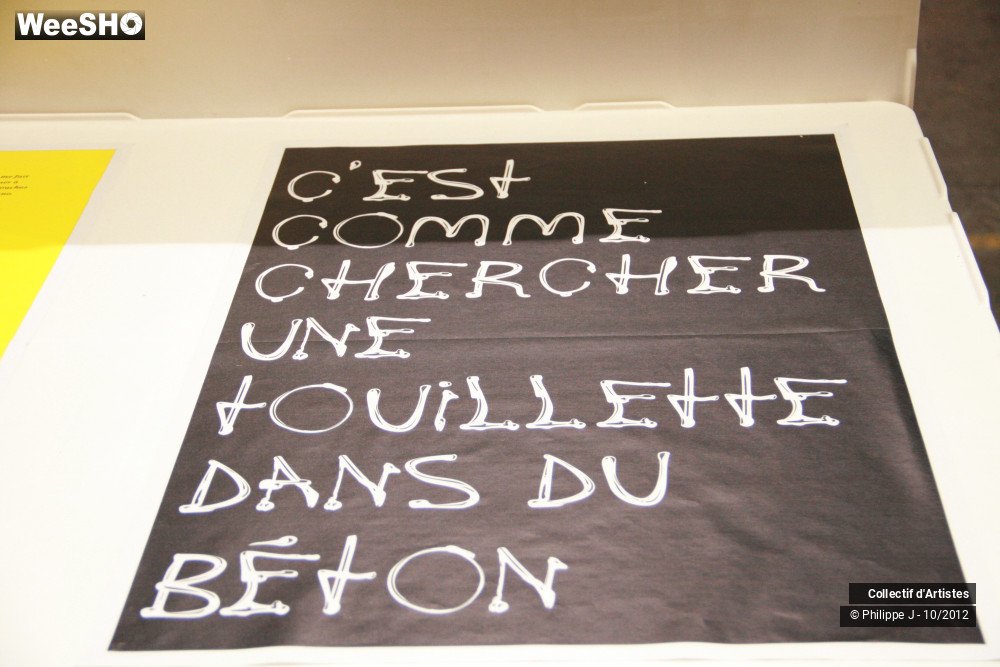 WeeSHO
C'EST
COMME
CHERCHER
UNE
tOUiLLEttE
DANS DU
BÉtON
Collectif d'Artistes
© Philippe J - 10/2012